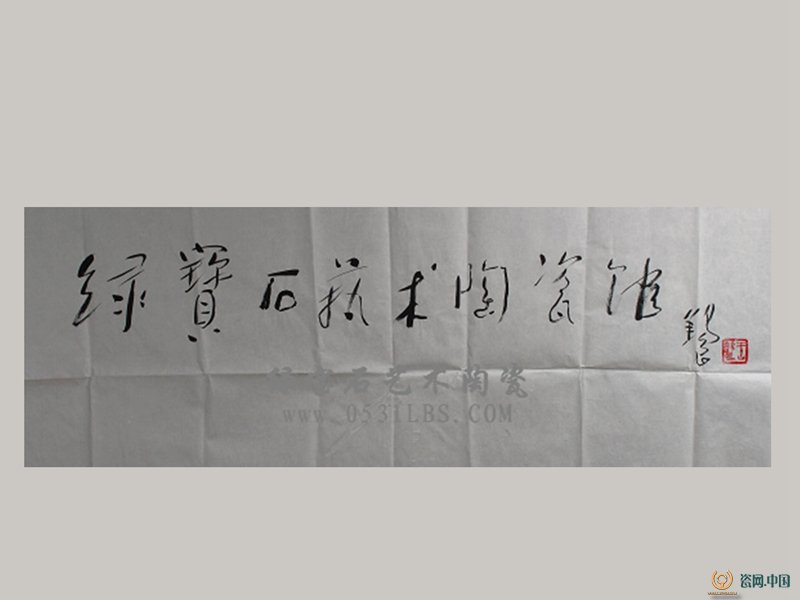 绿寶石藝术陶瓷馆
绿宝石艺术陶瓷
www.0531LBS.COM
瓷网.中国